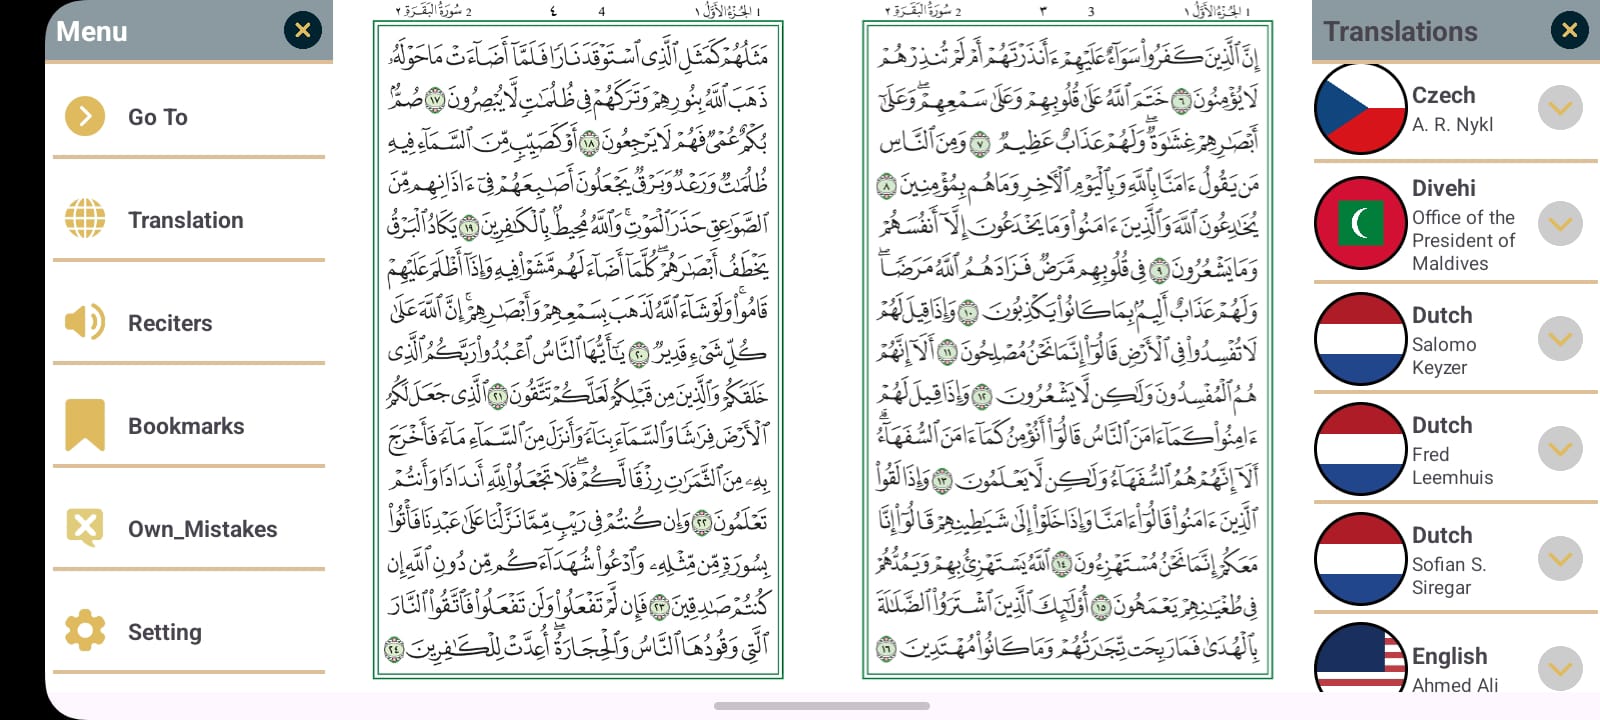 Menu
Go To
Translation
Reciters
Bookmarks
Own_Mistakes
Setting
1 الجُزءُ الأَوَّلُ ١
3 ٣
2 سُورَةُ البَقَرَةِ ٢
إِنَّ ٱلَّذِينَ كَفَرُوا۟ سَوَآءٌ عَلَيْهِمْ ءَأَنذَرْتَهُمْ أَمْ لَمْ تُنذِرْهُمْ
لَا يُؤْمِنُونَ ٦ خَتَمَ ٱللَّهُ عَلَىٰ قُلُوبِهِمْ وَعَلَىٰ سَمْعِهِمْ ۖ وَعَلَىٰٓ
أَبْصَـٰرِهِمْ غِشَـٰوَةٌ ۖ وَلَهُمْ عَذَابٌ عَظِيمٌ ٧ وَمِنَ ٱلنَّاسِ
مَن يَقُولُ ءَامَنَّا بِٱللَّهِ وَبِٱلْيَوْمِ ٱلْـَٔاخِرِ وَمَا هُم بِمُؤْمِنِينَ ٨
يُخَـٰدِعُونَ ٱللَّهَ وَٱلَّذِينَ ءَامَنُوا۟ وَمَا يَخْدَعُونَ إِلَّآ أَنفُسَهُمْ
وَمَا يَشْعُرُونَ ٩ فِى قُلُوبِهِم مَّرَضٌ فَزَادَهُمُ ٱللَّهُ مَرَضًا ۖ
وَلَهُمْ عَذَابٌ أَلِيمٌۢ بِمَا كَانُوا۟ يَكْذِبُونَ ١٠ وَإِذَا قِيلَ لَهُمْ
لَا تُفْسِدُوا۟ فِى ٱلْأَرْضِ قَالُوٓا۟ إِنَّمَا نَحْنُ مُصْلِحُونَ ١١ أَلَآ إِنَّهُمْ
هُمُ ٱلْمُفْسِدُونَ وَلَـٰكِن لَّا يَشْعُرُونَ ١٢ وَإِذَا قِيلَ لَهُمْ
ءَامِنُوا۟ كَمَآ ءَامَنَ ٱلنَّاسُ قَالُوٓا۟ أَنُؤْمِنُ كَمَآ ءَامَنَ ٱلسُّفَهَآءُ ۗ
أَلَآ إِنَّهُمْ هُمُ ٱلسُّفَهَآءُ وَلَـٰكِن لَّا يَعْلَمُونَ ١٣ وَإِذَا لَقُوا۟
ٱلَّذِينَ ءَامَنُوا۟ قَالُوٓا۟ ءَامَنَّا وَإِذَا خَلَوْا۟ إِلَىٰ شَيَـٰطِينِهِمْ قَالُوٓا۟ إِنَّا
مَعَكُمْ إِنَّمَا نَحْنُ مُسْتَهْزِءُونَ ١٤ ٱللَّهُ يَسْتَهْزِئُ بِهِمْ وَيَمُدُّهُمْ
فِى طُغْيَـٰنِهِمْ يَعْمَهُونَ ١٥ أُو۟لَـٰٓئِكَ ٱلَّذِينَ ٱشْتَرَوُا۟ ٱلضَّلَـٰلَةَ
بِٱلْهُدَىٰ فَمَا رَبِحَت تِّجَـٰرَتُهُمْ وَمَا كَانُوا۟ مُهْتَدِينَ ١٦
1 الجُزءُ الأَوَّلُ ١
4 ٤
2 سُورَةُ البَقَرَةِ ٢
مَثَلُهُمْ كَمَثَلِ ٱلَّذِى ٱسْتَوْقَدَ نَارًا فَلَمَّآ أَضَآءَتْ مَا حَوْلَهُۥ
ذَهَبَ ٱللَّهُ بِنُورِهِمْ وَتَرَكَهُمْ فِى ظُلُمَـٰتٍ لَّا يُبْصِرُونَ ١٧ صُمٌّۢ
بُكْمٌ عُمْىٌ فَهُمْ لَا يَرْجِعُونَ ١٨ أَوْ كَصَيِّبٍ مِّنَ ٱلسَّمَآءِ فِيهِ
ظُلُمَـٰتٌ وَرَعْدٌ وَبَرْقٌ يَجْعَلُونَ أَصَـٰبِعَهُمْ فِىٓ ءَاذَانِهِم مِّنَ
ٱلصَّوَٰعِقِ حَذَرَ ٱلْمَوْتِ ۚ وَٱللَّهُ مُحِيطٌۢ بِٱلْكَـٰفِرِينَ ١٩ يَكَادُ ٱلْبَرْقُ
يَخْطَفُ أَبْصَـٰرَهُمْ ۖ كُلَّمَآ أَضَآءَ لَهُم مَّشَوْا۟ فِيهِ وَإِذَآ أَظْلَمَ عَلَيْهِمْ
قَامُوا۟ ۚ وَلَوْ شَآءَ ٱللَّهُ لَذَهَبَ بِسَمْعِهِمْ وَأَبْصَـٰرِهِمْ ۚ إِنَّ ٱللَّهَ عَلَىٰ
كُلِّ شَىْءٍ قَدِيرٌ ٢٠ يَـٰٓأَيُّهَا ٱلنَّاسُ ٱعْبُدُوا۟ رَبَّكُمُ ٱلَّذِى
خَلَقَكُمْ وَٱلَّذِينَ مِن قَبْلِكُمْ لَعَلَّكُمْ تَتَّقُونَ ٢١ ٱلَّذِى جَعَلَ لَكُمُ
ٱلْأَرْضَ فِرَٰشًا وَٱلسَّمَآءَ بِنَآءً وَأَنزَلَ مِنَ ٱلسَّمَآءِ مَآءً فَأَخْرَجَ
بِهِۦ مِنَ ٱلثَّمَرَٰتِ رِزْقًا لَّكُمْ ۖ فَلَا تَجْعَلُوا۟ لِلَّهِ أَندَادًا وَأَنتُمْ
تَعْلَمُونَ ٢٢ وَإِن كُنتُمْ فِى رَيْبٍ مِّمَّا نَزَّلْنَا عَلَىٰ عَبْدِنَا فَأْتُوا۟
بِسُورَةٍ مِّن مِّثْلِهِۦ وَٱدْعُوا۟ شُهَدَآءَكُم مِّن دُونِ ٱللَّهِ إِن
كُنتُمْ صَـٰدِقِينَ ٢٣ فَإِن لَّمْ تَفْعَلُوا۟ وَلَن تَفْعَلُوا۟ فَٱتَّقُوا۟ ٱلنَّارَ
ٱلَّتِى وَقُودُهَا ٱلنَّاسُ وَٱلْحِجَارَةُ ۖ أُعِدَّتْ لِلْكَـٰفِرِينَ ٢٤
Translations
Czech
A. R. Nykl
Divehi
Office of the
President of
Maldives
Dutch
Salomo
Keyzer
Dutch
Fred
Leemhuis
Dutch
Sofian S.
Siregar
English
Ahmed Ali